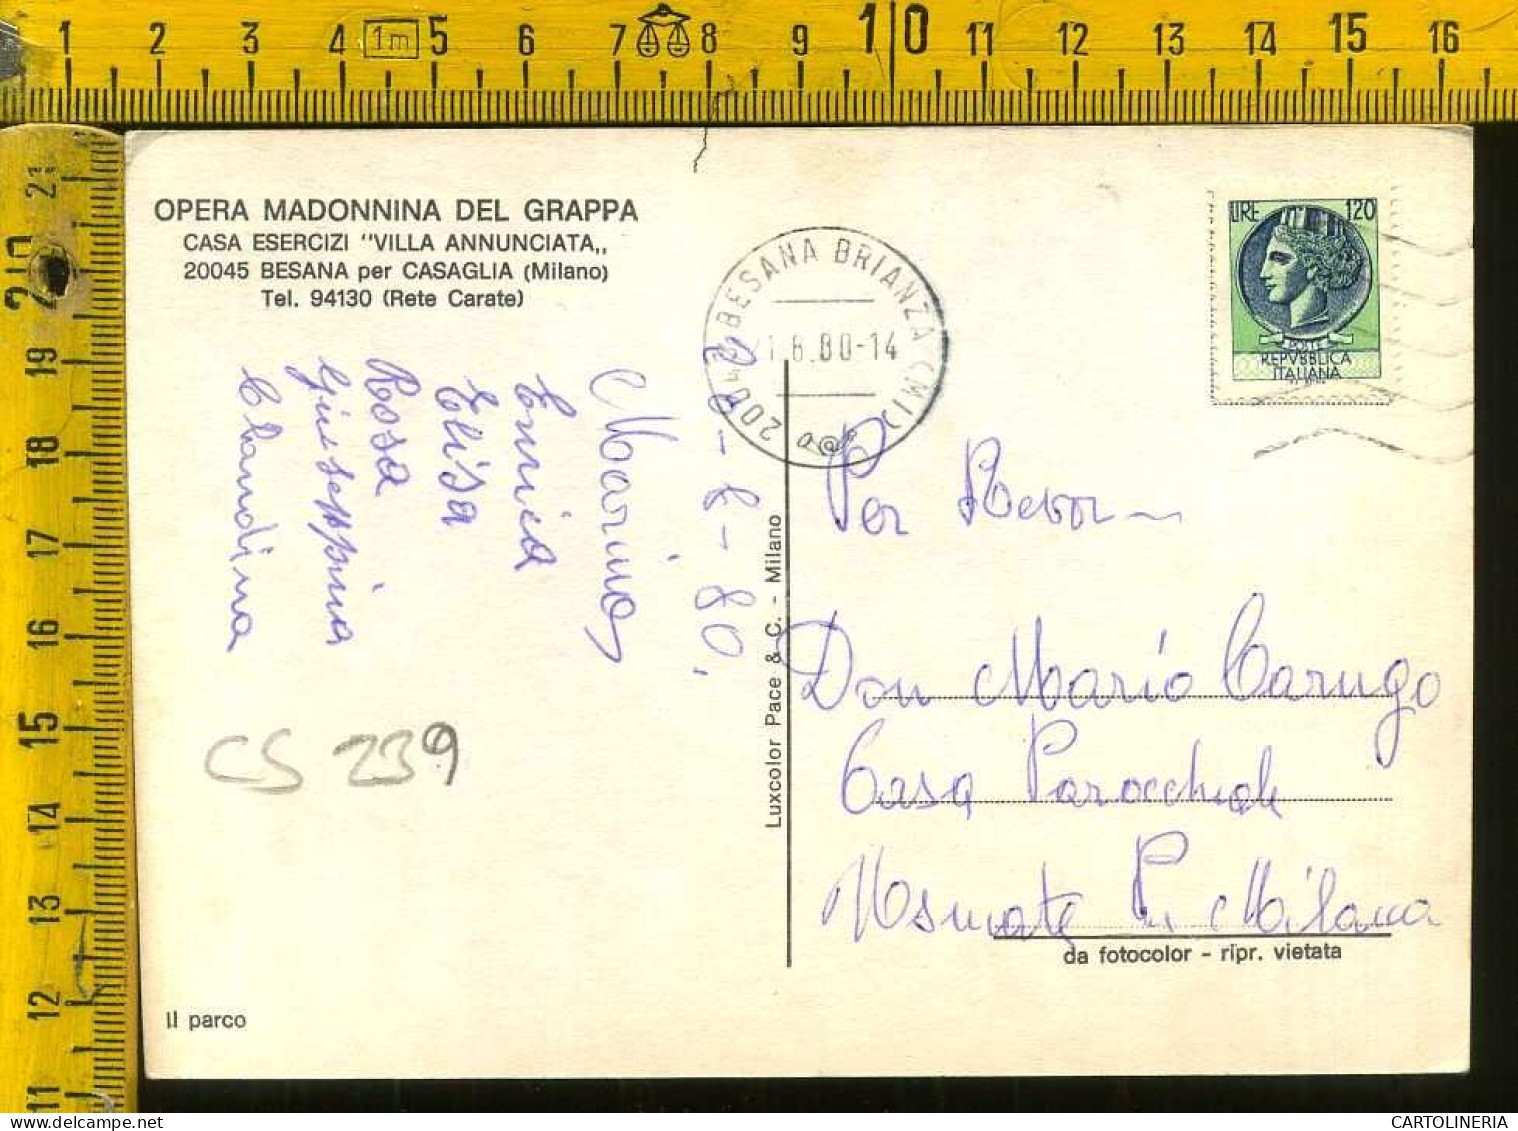 1 2 3 4 1m 5 6 7 8 9 10 11 12 13 14 15 16
21
20
19
18
17
16
15
14
13
12
11
OPERA MADONNINA DEL GRAPPA
CASA ESERCIZI "VILLA ANNUNCIATA,,
20045 BESANA per CASAGLIA (Milano)
Tel. 94130 (Rete Carate)
BESANA BRIANZA (MI)
LIRE 120
POSTE
REPVBBLICA
ITALIANA
Marino
Enrica
Elisa
Rosa
Giuseppina
Claudina
- 8 - 80.
CS 239
Il parco
Luxcolor Pace & C. - Milano
Per
Don Mario Carugo
Casa Parocchiale
Usmate P. Milano
da fotocolor - ripr. vietata
CARTOLINERIA